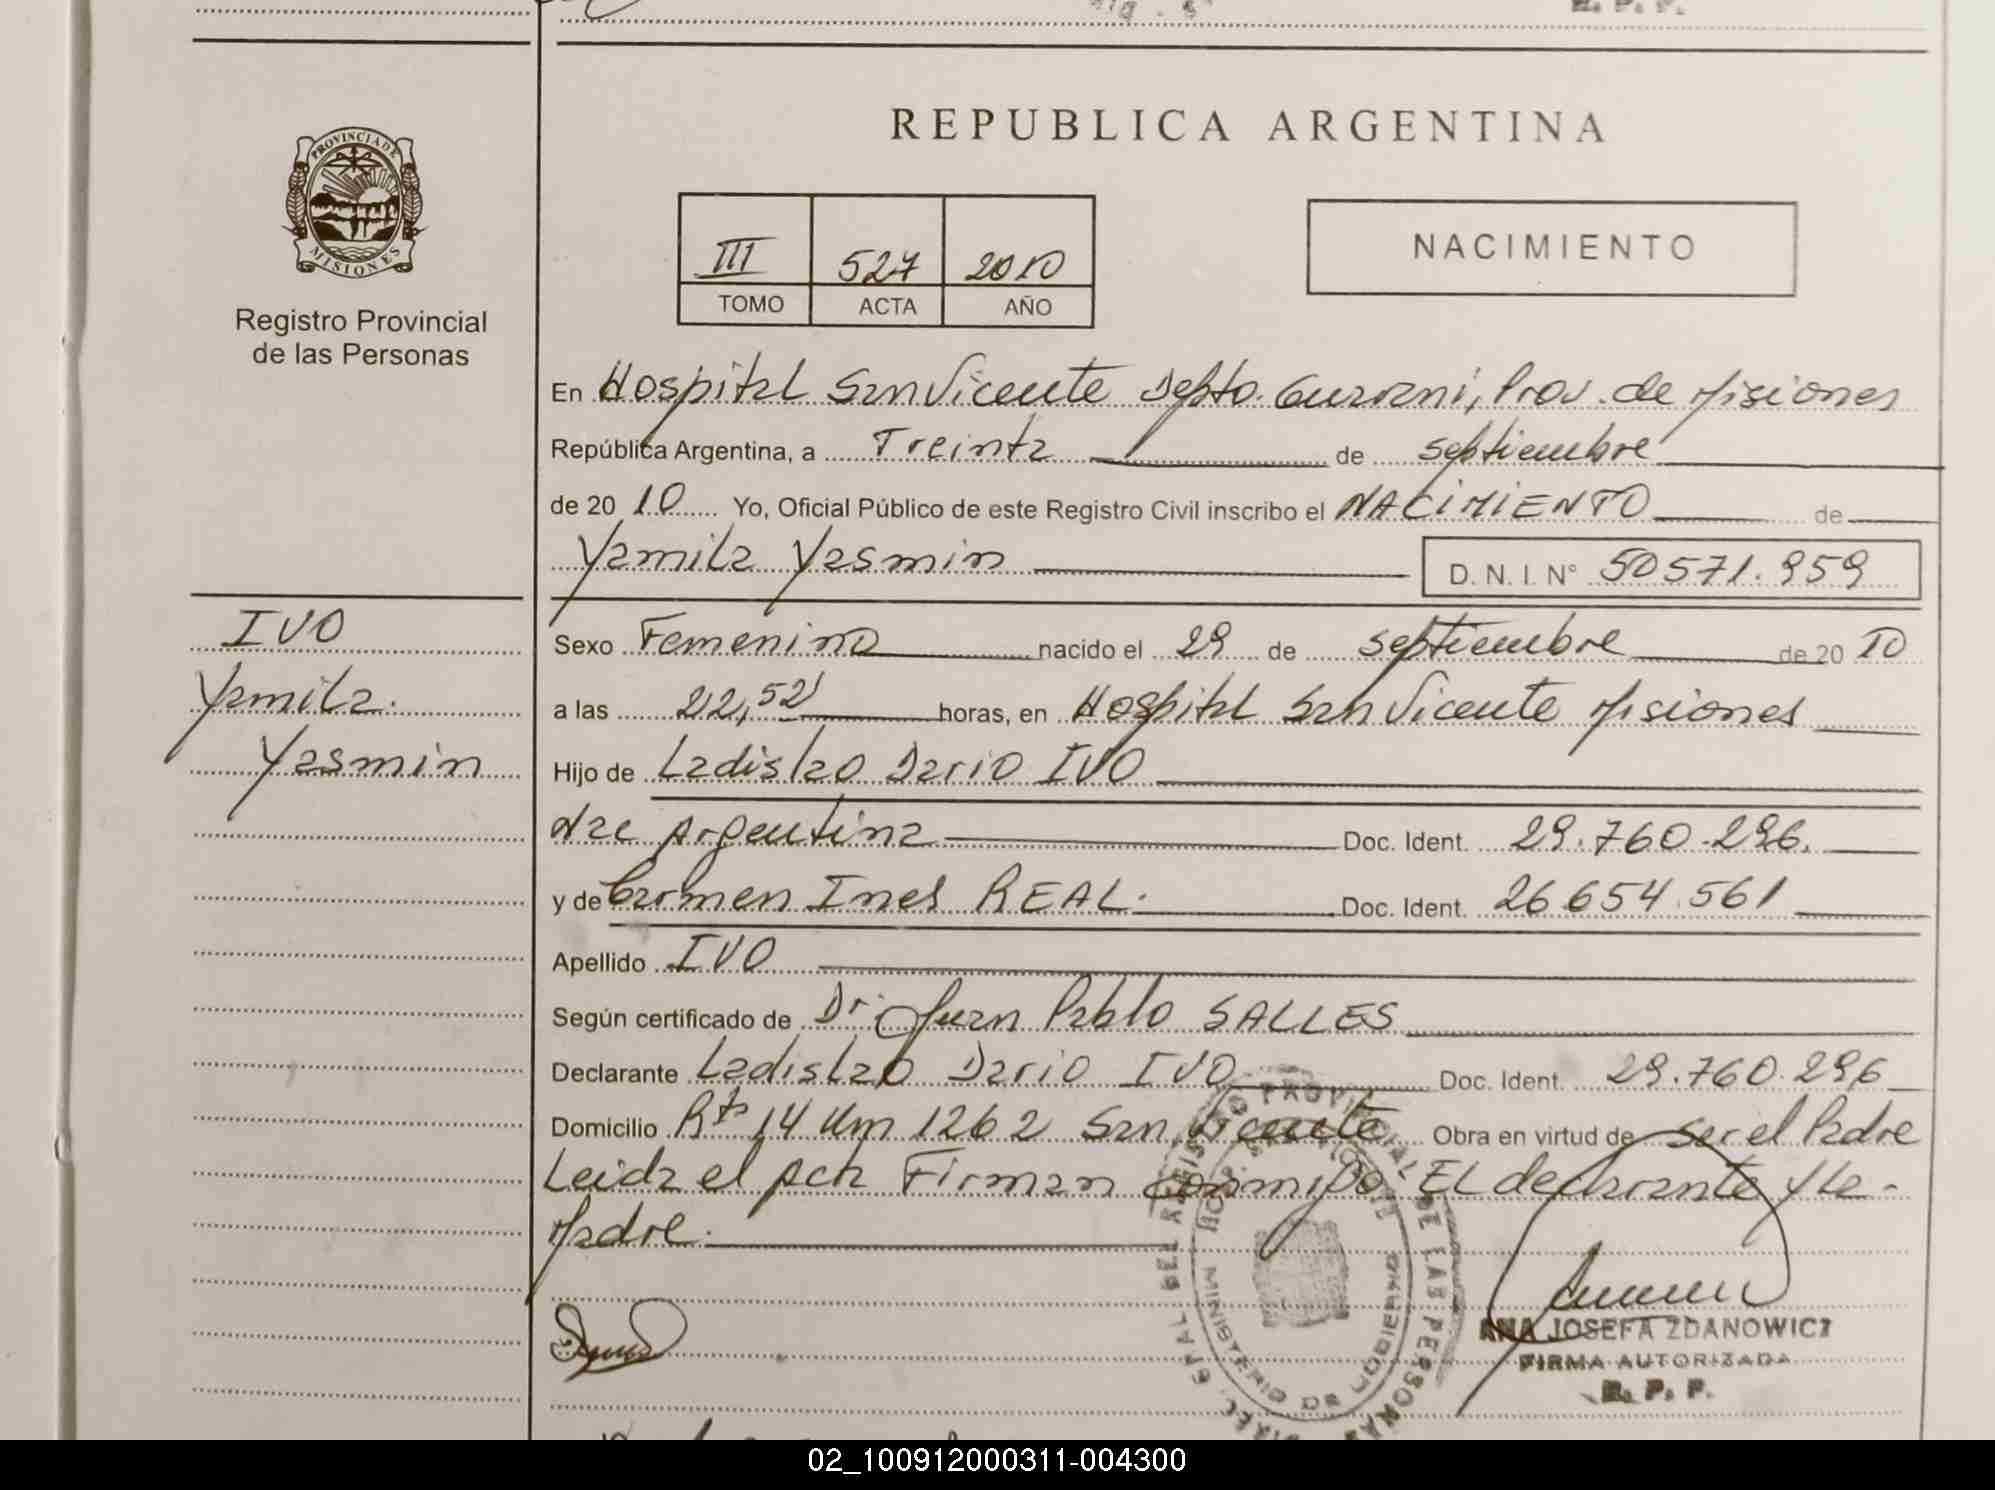 PROVINCIA DE
MISIONES
Registro Provincial
de las Personas
REPUBLICA ARGENTINA
III 527 2010
TOMO ACTA AÑO
NACIMIENTO
En Hospital San Vicente Depto. Guarani, Prov. de Misiones
República Argentina, a Treinta de septiembre
de 2010 Yo, Oficial Público de este Registro Civil inscribo el NACIMIENTO de
Yamila Yasmin D. N. I. N° 50571.959
IVO
Yamila
Yasmin
Sexo Femenino nacido el 29 de septiembre de 2010
a las 22,52 horas, en Hospital San Vicente Misiones
Hijo de Ladislao Dario IVO
Nac Argentina Doc. Ident. 29.760.296.
y de Carmen Ines REAL. Doc. Ident. 26654.561
Apellido IVO
Según certificado de Dr. Juan Pablo SALLES
Declarante Ladislao Dario IVO Doc. Ident. 29.760.296
Domicilio Rta 14 Km 1262 San Vicente Obra en virtud de ser el Padre
Leida el acta Firman conmigo EL declarante y la
Madre.
ANA JOSEFA ZDANOWICZ
FIRMA AUTORIZADA
R. P. P.
02_100912000311-004300